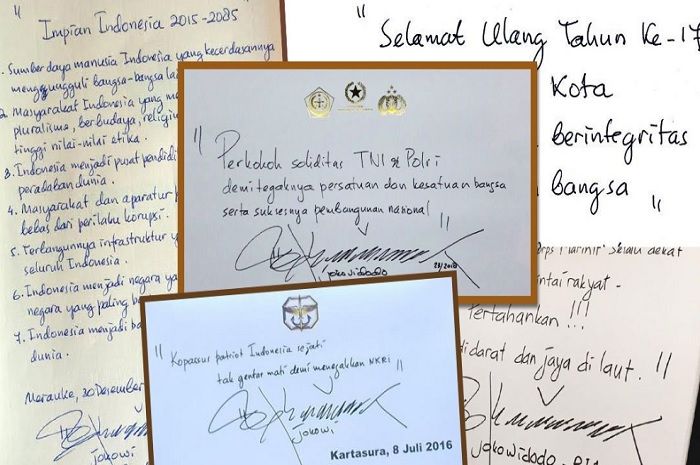 "
Impian Indonesia 2015-2085
1. Sumber daya manusia Indonesia yang kecerdasannya
mengungguli bangsa-bangsa lai
2. Masyarakat Indonesia yang m
pluralisme, berbudaya, religiu
tinggi nilai-nilai etika.
3. Indonesia menjadi pusat pendidi
peradaban dunia.
4. Masyarakat dan aparatur p
bebas dari perilaku korupsi.
5. Terbangunnya infrastruktur y
seluruh Indonesia.
6. Indonesia menjadi negara ya
negara yang paling b
7. Indonesia menjadi ba
dunia.
Merauke, 30 Desember
jokowi
" Selamat Ulang Tahun Ke-17
Kota
berintegritas
bangsa "
" Perkokoh soliditas TNI & Polri
demi tegaknya persatuan dan kesatuan bangsa
serta suksesnya pembangunan nasional "
jokowidodo
" Kopassus patriot Indonesia sejati
tak gentar mati demi menegakkan NKRI "
jokowi
Kartasura, 8 Juli 2016
Marinir selalu dekat
intai rakyat -
Pertahankan !!!
didarat dan jaya di laut. "
jokowidodo -